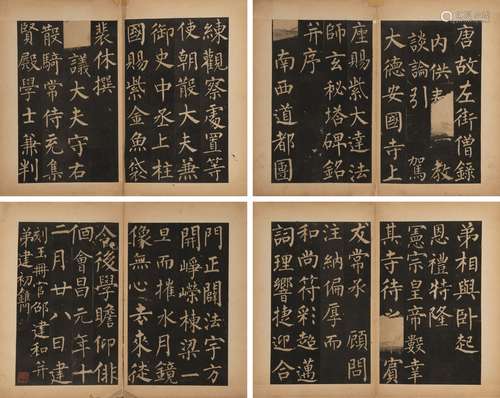 唐故左街僧錄
內供 教
談論引 駕
大德安國寺上
座賜紫大達法
師玄秘塔碑銘
并序
南西道都團
練觀察處置等
使朝散大夫兼
御史中丞上柱
國賜紫金魚袋
裴休撰
議大夫守右
散騎常侍充集
賢殿學士兼判
弟相與卧起
恩禮特隆
憲宗皇帝數幸
其寺待之 賓
友常承 顧問
注納偏厚而
和尚符彩超邁
詞理響捷迎合
門正闢法宇方
開崢嶸棟梁一
旦而摧水月鏡
像無心去來徒
令後學瞻仰徘
徊會昌元年十
二月廿八日建
刻玉冊官邵建和并
弟建初鐫